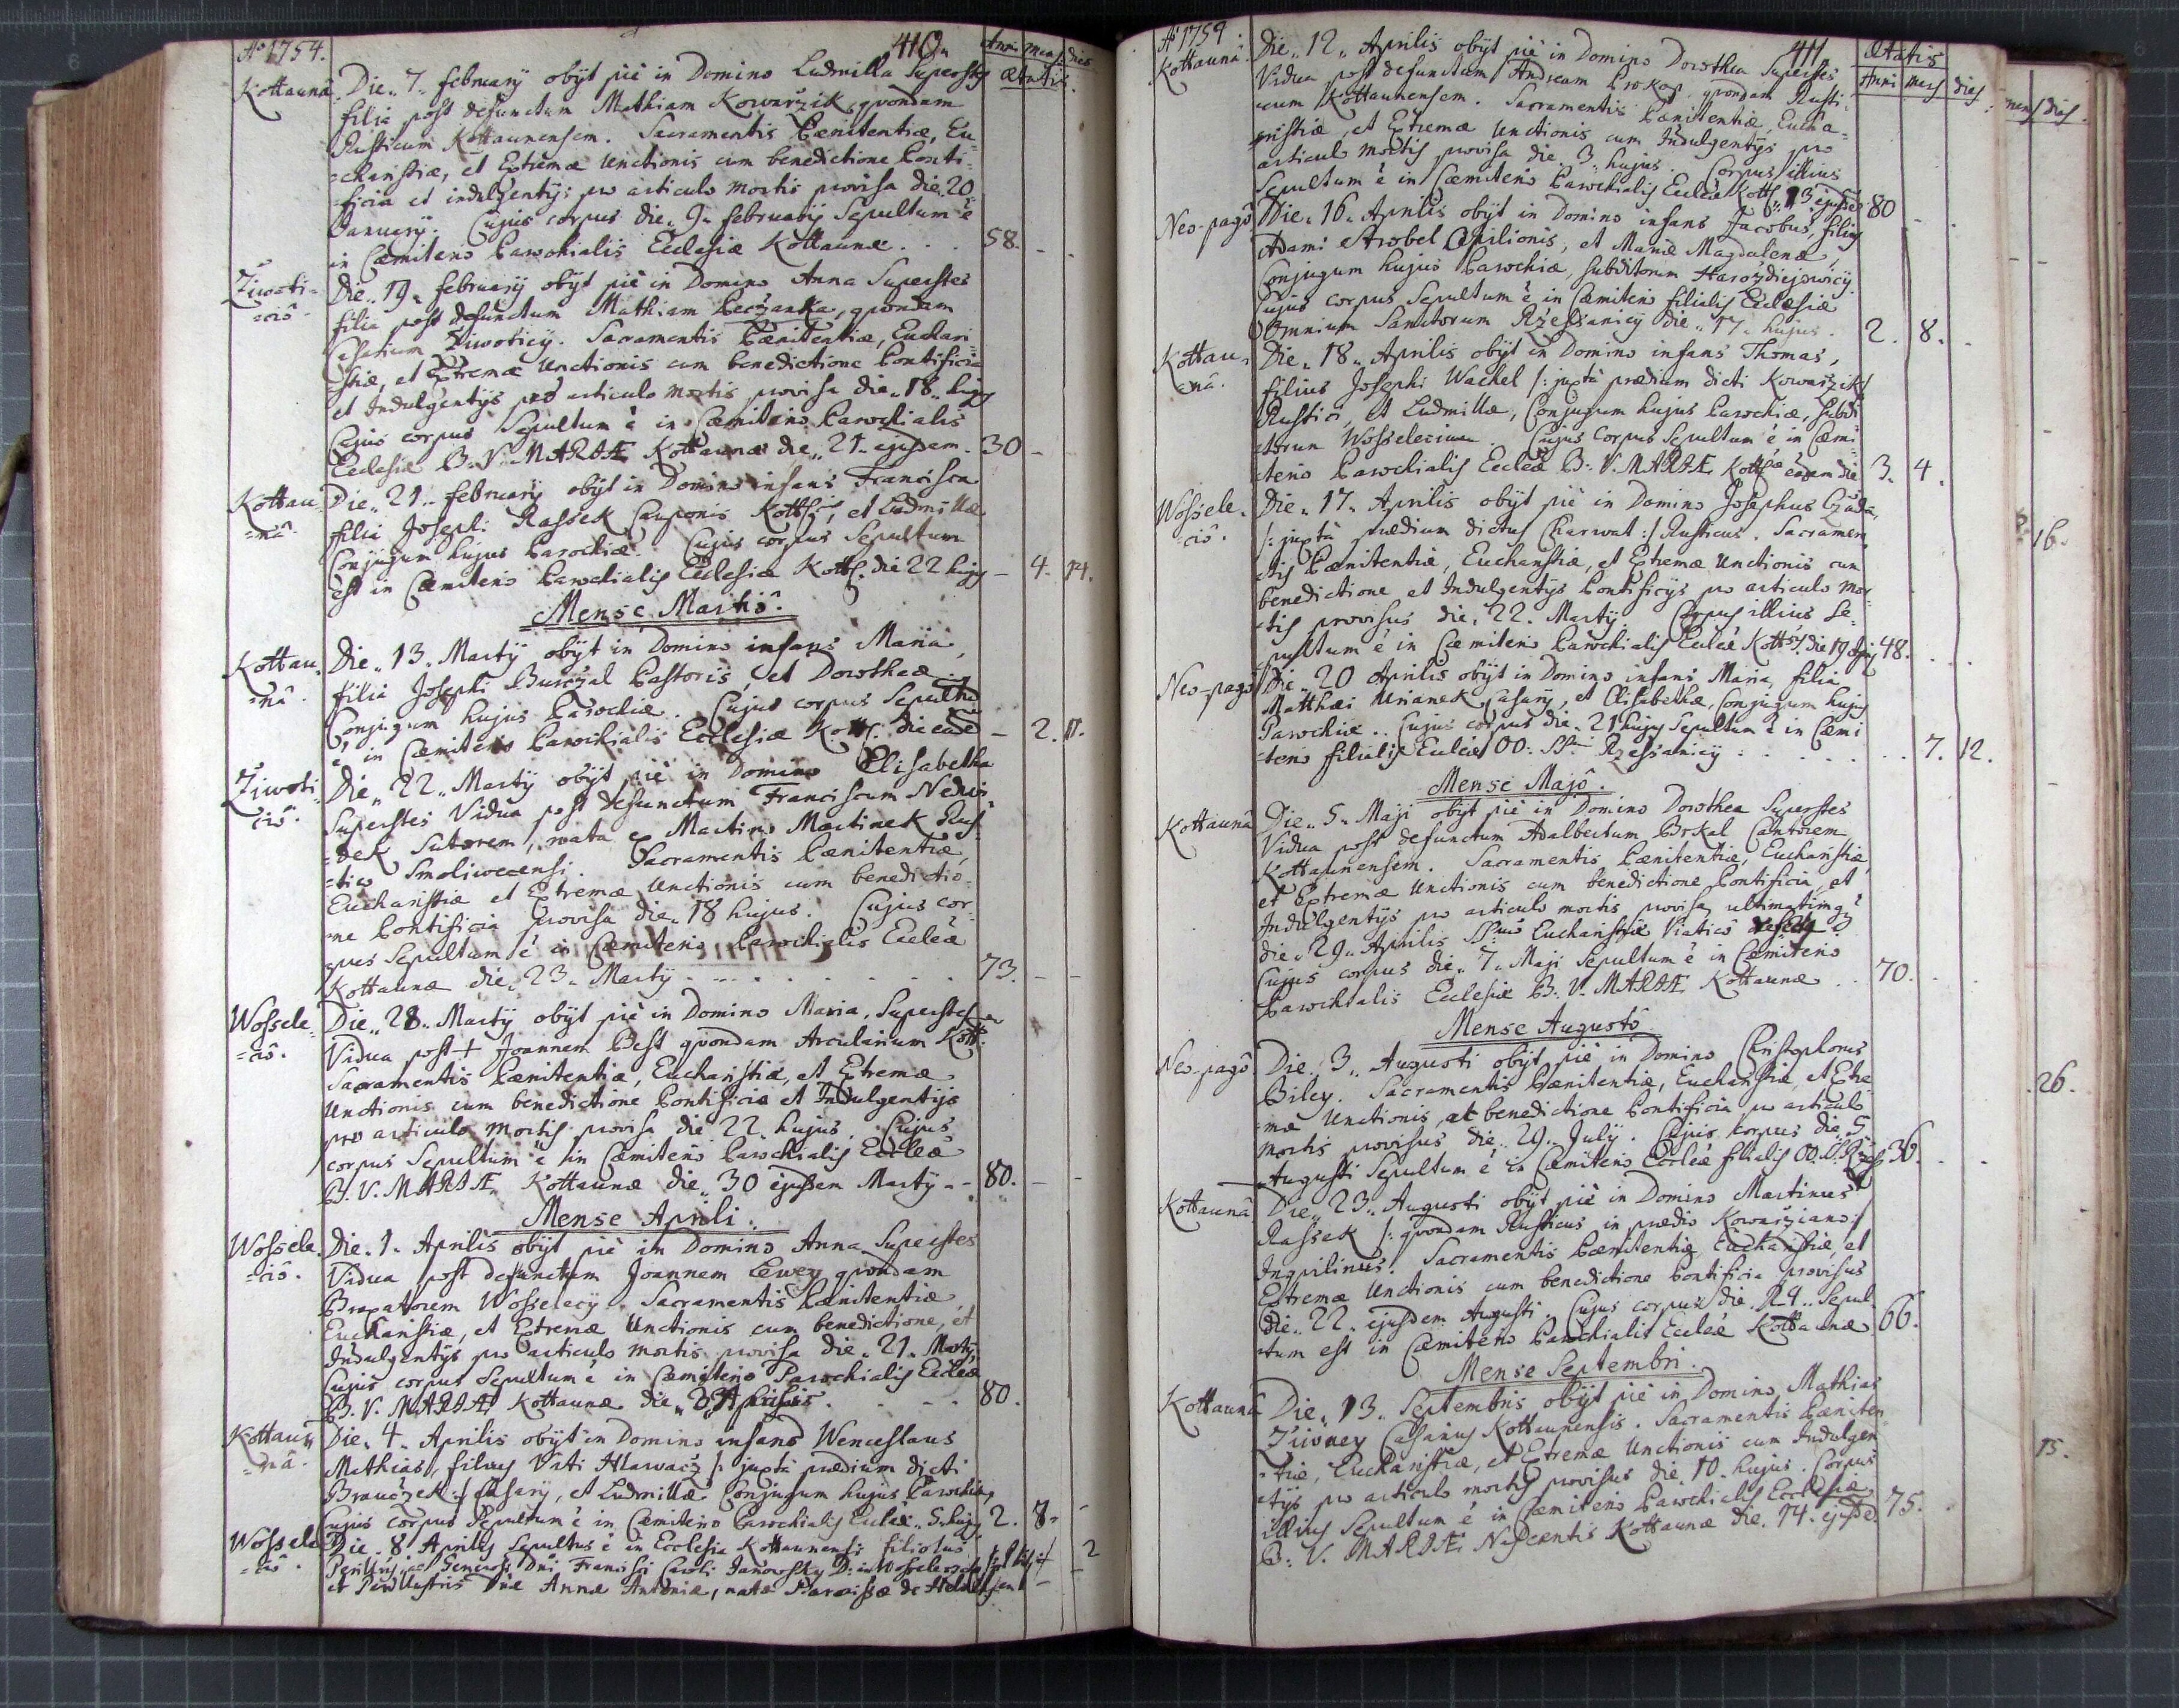 Aō 1754.
410.
Anni mens dies
ætatis.
Kottaunâ. Die. 7. februarÿ obÿt piè in Domino Ludmilla Superstes
filia post defunctum Mathiam Kowaržik, qvondam
Rusticum Kottaunensem. Sacramentis Pænitentiæ, Eu=
=charistiæ, et Extremæ Unctionis cum benedictione Ponti=
=ficia et indulgentÿs pro articulo mortis provisa die. 20
Januarÿ. Cujus corpus die. 9. februarÿ Sepultum ē
in Cæmiterio Parochialis Ecclesiæ Kottaunæ . . . 58. - -
Žiwoti=
=ciô.
Die. 19. februarÿ obÿt piè in Domino Anna Superstes
filia post defunctum Mathiam Peczanka, qvondam
Casarium Žiwoticÿ. Sacramentis Pænitentiæ, Euchari=
=stiæ, et Extremæ Unctionis cum benedictione Pontificia
et Indulgentÿs pro articulo mortis provisa die. 18. hujus
Cujus corpus Sepultum ē in Cæmiterio Parochialis
Ecclesiæ B. V. MARIÆ Kottaunæ die. 21. ejusdem. 30 -
Kottau=
=nâ.
Die. 21. februarÿ obÿt in Domino infans Francisca
filia Josephi Rassek Cauponis Kottsis, et Ludmillæ
Conjugum hujus Parochiæ. Cujus corpus Sepultum
est in Cæmiterio Parochialis Ecclesiæ Kotts. die 22 hujus - 4. 14.
Mense Martiô.
Kottau=
=nâ.
Die. 13. Martÿ obÿt in Domino infans Maria,
filia Josephi Burczal Pastoris, et Dorotheæ
Conjugum hujus Parochiæ. Cujus corpus Sepultū
ē in Cæmiterio Parochialis Ecclesiæ Kotts. die eadē - 2. 11.
Žiwoti=
ciô.
Die. 22. Martÿ obÿt piè in Domino Elisabetha
Superstes Vidua post defunctum Franciscum Nedwi=
=dek Sutorem, nata ex Martino Martinek Rus=
=tico Smoliwecensi. Sacramentis Pænitentiæ,
Eucharistiæ et Extremæ Unctionis cum benedictio=
=ne Pontificia provisa die. 18 hujus. Cujus cor=
=pus Sepultum ē in Cæmiterio Parochialis Eccleæ
Kottaunæ die. 23. Martÿ . . . . . . . 73. - -
Wossele=
=ciô.
Die. 28. Martÿ obÿt piè in Domino Maria, Superstes
Vidua post + Joannem Best qvondam Arcularium Kott.
Sacramentis Pænitentiæ, Eucharistiæ, et Extremæ
Unctionis cum benedictione Pontificia et Indulgentÿs
pro articulo mortis provisa die 22. hujus. Cujus
corpus Sepultum ē in Cæmiterio Parochialis Eccleæ
B. V. MARIÆ Kottaunæ die. 30 ejusdem Martÿ - - 80. - -
Mense Aprili.
Wossele=
=ciô.
Die. 1. Aprilis obÿt piè in Domino Anna Superstes
Vidua post defunctum Joannem Lewey qvondam
Braxatorem Wosselecÿ. Sacramentis Pænitentiæ,
Eucharistiæ, et Extremæ Unctionis cum benedictione, et
Indulgentÿs pro articulo mortis provisa die. 21. Martÿ.
Cujus corpus Sepultum ē in Cæmiterio Parochialis Eccleæ
B. V. MARIÆ Kottaunæ die. 3. Aprilis. . . . . 80.
Kottau=
=nâ.
Die. 4. Aprilis obÿt in Domino infans Wenceslaus
Mathias, filius Viti Hlawacz /: juxtà prædium dicti
Brauczek :/ Casarÿ, et Ludmillæ Conjugum hujus Parochiæ,
Cujus corpus Sepultum ē in Cæmiterio Parochialis Eccleæ. 5. hujus 2. 8. -
Wossele=
=ciô.
Die. 8 Aprilis Sepultus ē in Ecclesia Kottaunensi filiolus
Perillris ac Generosi Dni Francisci Caroli Janowsky D: in Wosseletz - - 2
et Perillustris Dnæ Annæ Antoniæ, natæ
Aō 1754.
411.
ætatis
Anni mens dies
Kottaunâ. Die. 12. Aprilis obÿt piè in Domino Dorothea Superstes
Vidua post defunctum Andream Prokop qvondam Rusti=
=cum Kottaunensem. Sacramentis Pænitentiæ, Eucha=
=ristiæ, et Extremæ Unctionis cum Indulgentÿs pro
articulo mortis provisa die. 3. hujus. Corpus illius
Sepultum ē in Cæmiterio Parochialis Eccleæ Kotts. 13. ejusdē 80 - .
Neo-pagô
Die. 16. Aprilis obÿt in Domino infans Jacobus, filius
Adami Strobel Opilionis, et Mariæ Magdalenæ,
Conjugum hujus Parochiæ, subditorum Harozdiejowicÿ.
Cujus corpus Sepultum ē in Cæmiterio filialis Ecclesiæ
Omnium Sanctorum Rzessanicÿ die. 17. hujus. 2. 8. -
Kottau=
=nâ.
Die. 18. Aprilis obÿt in Domino infans Thomas,
filius Josephi Wachel /: juxtà prædium dicti Kowaržik :/
Rustici, et Ludmillæ, Conjugum hujus Parochiæ, subdi=
=torum Wosselecium. Cujus Corpus Sepultum ē in Cæmi=
=terio Parochialis Eccleæ B: V. MARIÆ Kottsis eadem die 3. 4.
Wossele=
=ciô.
Die. 17. Aprilis obÿt piè in Domino Josephus Czada,
/: juxtà prædium dictus Charwat :/ Rusticus. Sacramen=
=tis Pænitentiæ, Eucharistiæ, et Extremæ Unctionis cum
benedictione et Indulgentÿs Pontificÿs pro articulo mor=
=tis provisus die. 22. Martÿ. Corpus illius Se=
=pultum ē in Cæmiterio Parochialis Eccleæ Kottsis die 19 48. . .
Neo-pagô
Die. 20 Aprilis obÿt in Domino infans Maria, filia
Matthæi Urianek Casarÿ, et Elisabethæ, Conjugum hujus
Parochiæ. Cujus corpus die. 21 hujus Sepultum ē in Cæmi=
=terio filialis Eccleæ OO: SS. Rzessanicÿ . . . . . . 7. 12.
Mense Majô.
Kottaunâ
Die. 5. Maji obÿt piè in Domino Dorothea Superstes
Vidua post defunctum Adalbertum Brkal Cantorem
Kottaunensem. Sacramentis Pænitentiæ, Eucharistiæ,
et Extremæ Unctionis cum benedictione Pontificia, et
Indulgentÿs pro articulo mortis provisa, ultimatim
die. 29. Aprilis Eucharistiæ Viatico refecta
Cujus corpus die. 7. Maji Sepultum ē in Cæmiterio
Parochialis Ecclesiæ B: V. MARIÆ Kottaunæ . . 70. -
Mense Augustô
Neo-pagô
Die. 3. Augusti obÿt piè in Domino Christophorus
Biley. Sacramentis Pænitentiæ, Eucharistiæ, et Extre=
=mæ Unctionis, et benedictione Pontificia pro articulo
mortis provisus die. 29. Julÿ. Cujus corpus die 5
Augusti Sepultum ē in Cæmiterio Eccleæ filialis OO. SS. Rzess. 36. . .
Kottaunâ
Die. 23. Augusti obÿt piè in Domino Martinus
Rassek /: qvondam Rusticus in prædio Kowaržiano :/
Inqvilinus. Sacramentis Pænitentiæ, Eucharistiæ, et
Extremæ Unctionis cum benedictione Pontificia provisus
die. 22. ejusdem Augusti. Cujus corpus die. 24. Sepul=
=tum est in Cæmiterio Parochialis Eccleæ Kottaunæ 66.
Mense Septembri.
Kottaunâ
Die. 13. Septembris obÿt piè in Domino Mathias
Žiwney Casarius Kottaunensis. Sacramentis Pæniten=
=tiæ, Eucharistiæ, et Extremæ Unctionis cum Indulgen=
=tÿs pro articulo mortis provisus die. 10. hujus. Corpus
illius Sepultum ē in Cæmiterio Parochialis Ecclesiæ
B: V. MARIÆ Nascentis Kottaunæ die. 14. ejusdē. 75.
mens dies.
16.
26.
15.